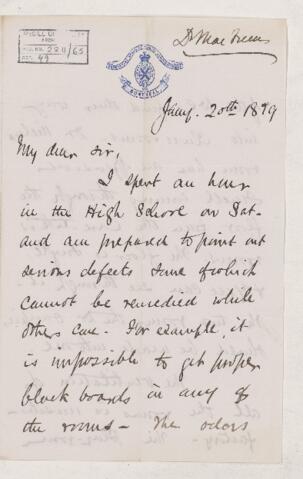 Dr MacVicar
2811/65
49
MONTREAL
Jany. 20th 1879
My dear Sir,
I spent an hour
in the High School on Sat-
and am prepared to point out
serious defects some of which
cannot be remedied while
others can. For example, it
is impossible to get proper
black boards in any of
the rooms - The odors